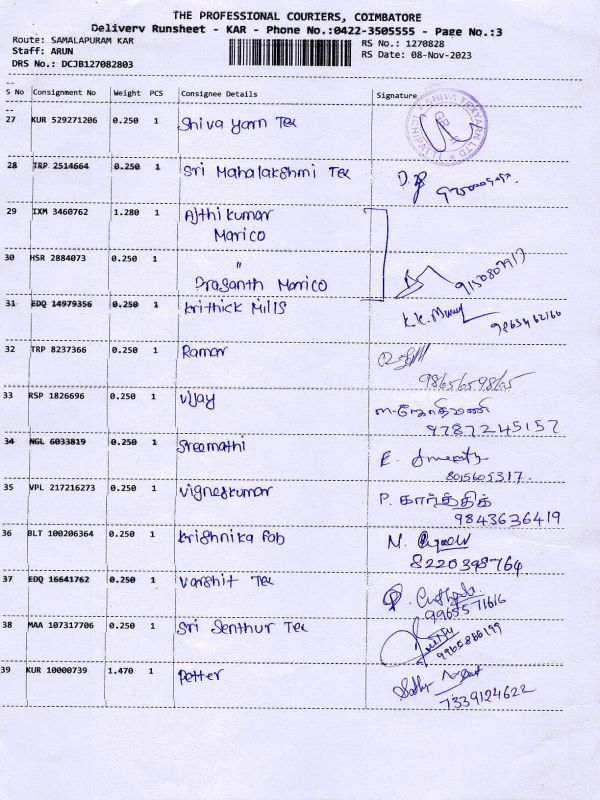 THE PROFESSIONAL COURIERS, COIMBATORE
Delivery Runsheet - KAR - Phone No.:0422-3505555 - Page No.:3
Route: SAMALAPURAM KAR RS No.: 1270828
Staff: ARUN RS Date: 08-Nov-2023
DRS No.: DCJB127082803
S No Consignment No Weight PCS Consignee Details Signature
27 KUR 529271206 0.250 1 Shiva yarn Tex
SHIVA TEXYARN LTD
28 TRP 2514664 0.250 1 Sri Mahalakshmi Tex
29 IXM 3460762 1.280 1 Ajthikumar
Marico
30 HSR 2884073 0.250 1 "
Prasanth Marico 9150807917
31 EDQ 14979356 0.250 1 Krithick Mills K.K.
32 TRP 8237366 0.250 1 Ramar
9865659865
33 RSP 1826696 0.250 1 Vijay ம.ஜோதிமணி
9787245157
34 NGL 6033819 0.250 1 Sreemathi E.
8015605317.
35 VPL 217216273 0.250 1 Vigneskumar P. கார்த்திக்
9843636419
36 BLT 100206364 0.250 1 Krishnika Fab M.
8220398764
37 EDQ 16641762 0.250 1 Varshit Tex
9965571616
38 MAA 107317706 0.250 1 Sri Senthur Tex
39 KUR 10000739 1.470 1 Petter
7339124622